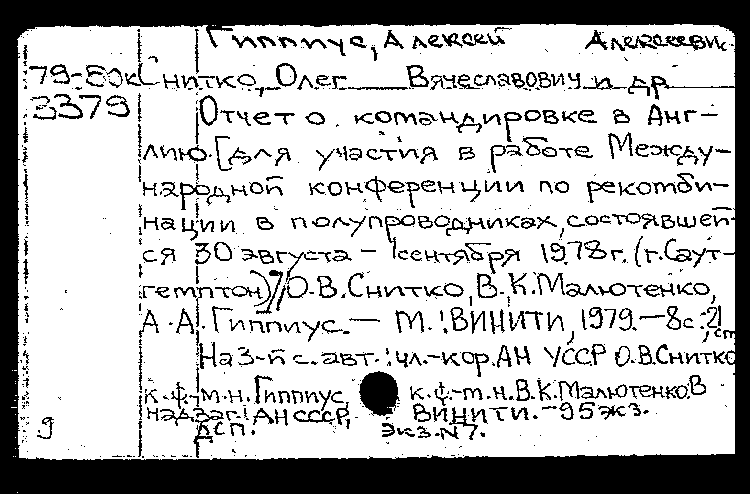 Гиппиус, Алексей Алексеевич
79-80к Снитко, Олег Вячеславович и др
3379 Отчет о командировке в Анг-
лию. [для участия в работе Между-
народной конференции по рекомби-
нации в полупроводниках, состоявшей-
ся 30 августа - 1 сентября 1978 г. (г. Саут-
гемптон)] / О.В. Снитко, В.К. Малютенко,
А.А. Гиппиус. — М.: ВИНИТИ, 1979. — 8 с.; 21
На 3-й с. авт.: чл.-кор. АН УССР О.В. Снитко
к.ф.-м.н. Гиппиус, к.ф.-т.н. В.К. Малютенко. В
над заг.: АН СССР, ВИНИТИ. - 95 экз.
9 ДСП. Экз. N7.